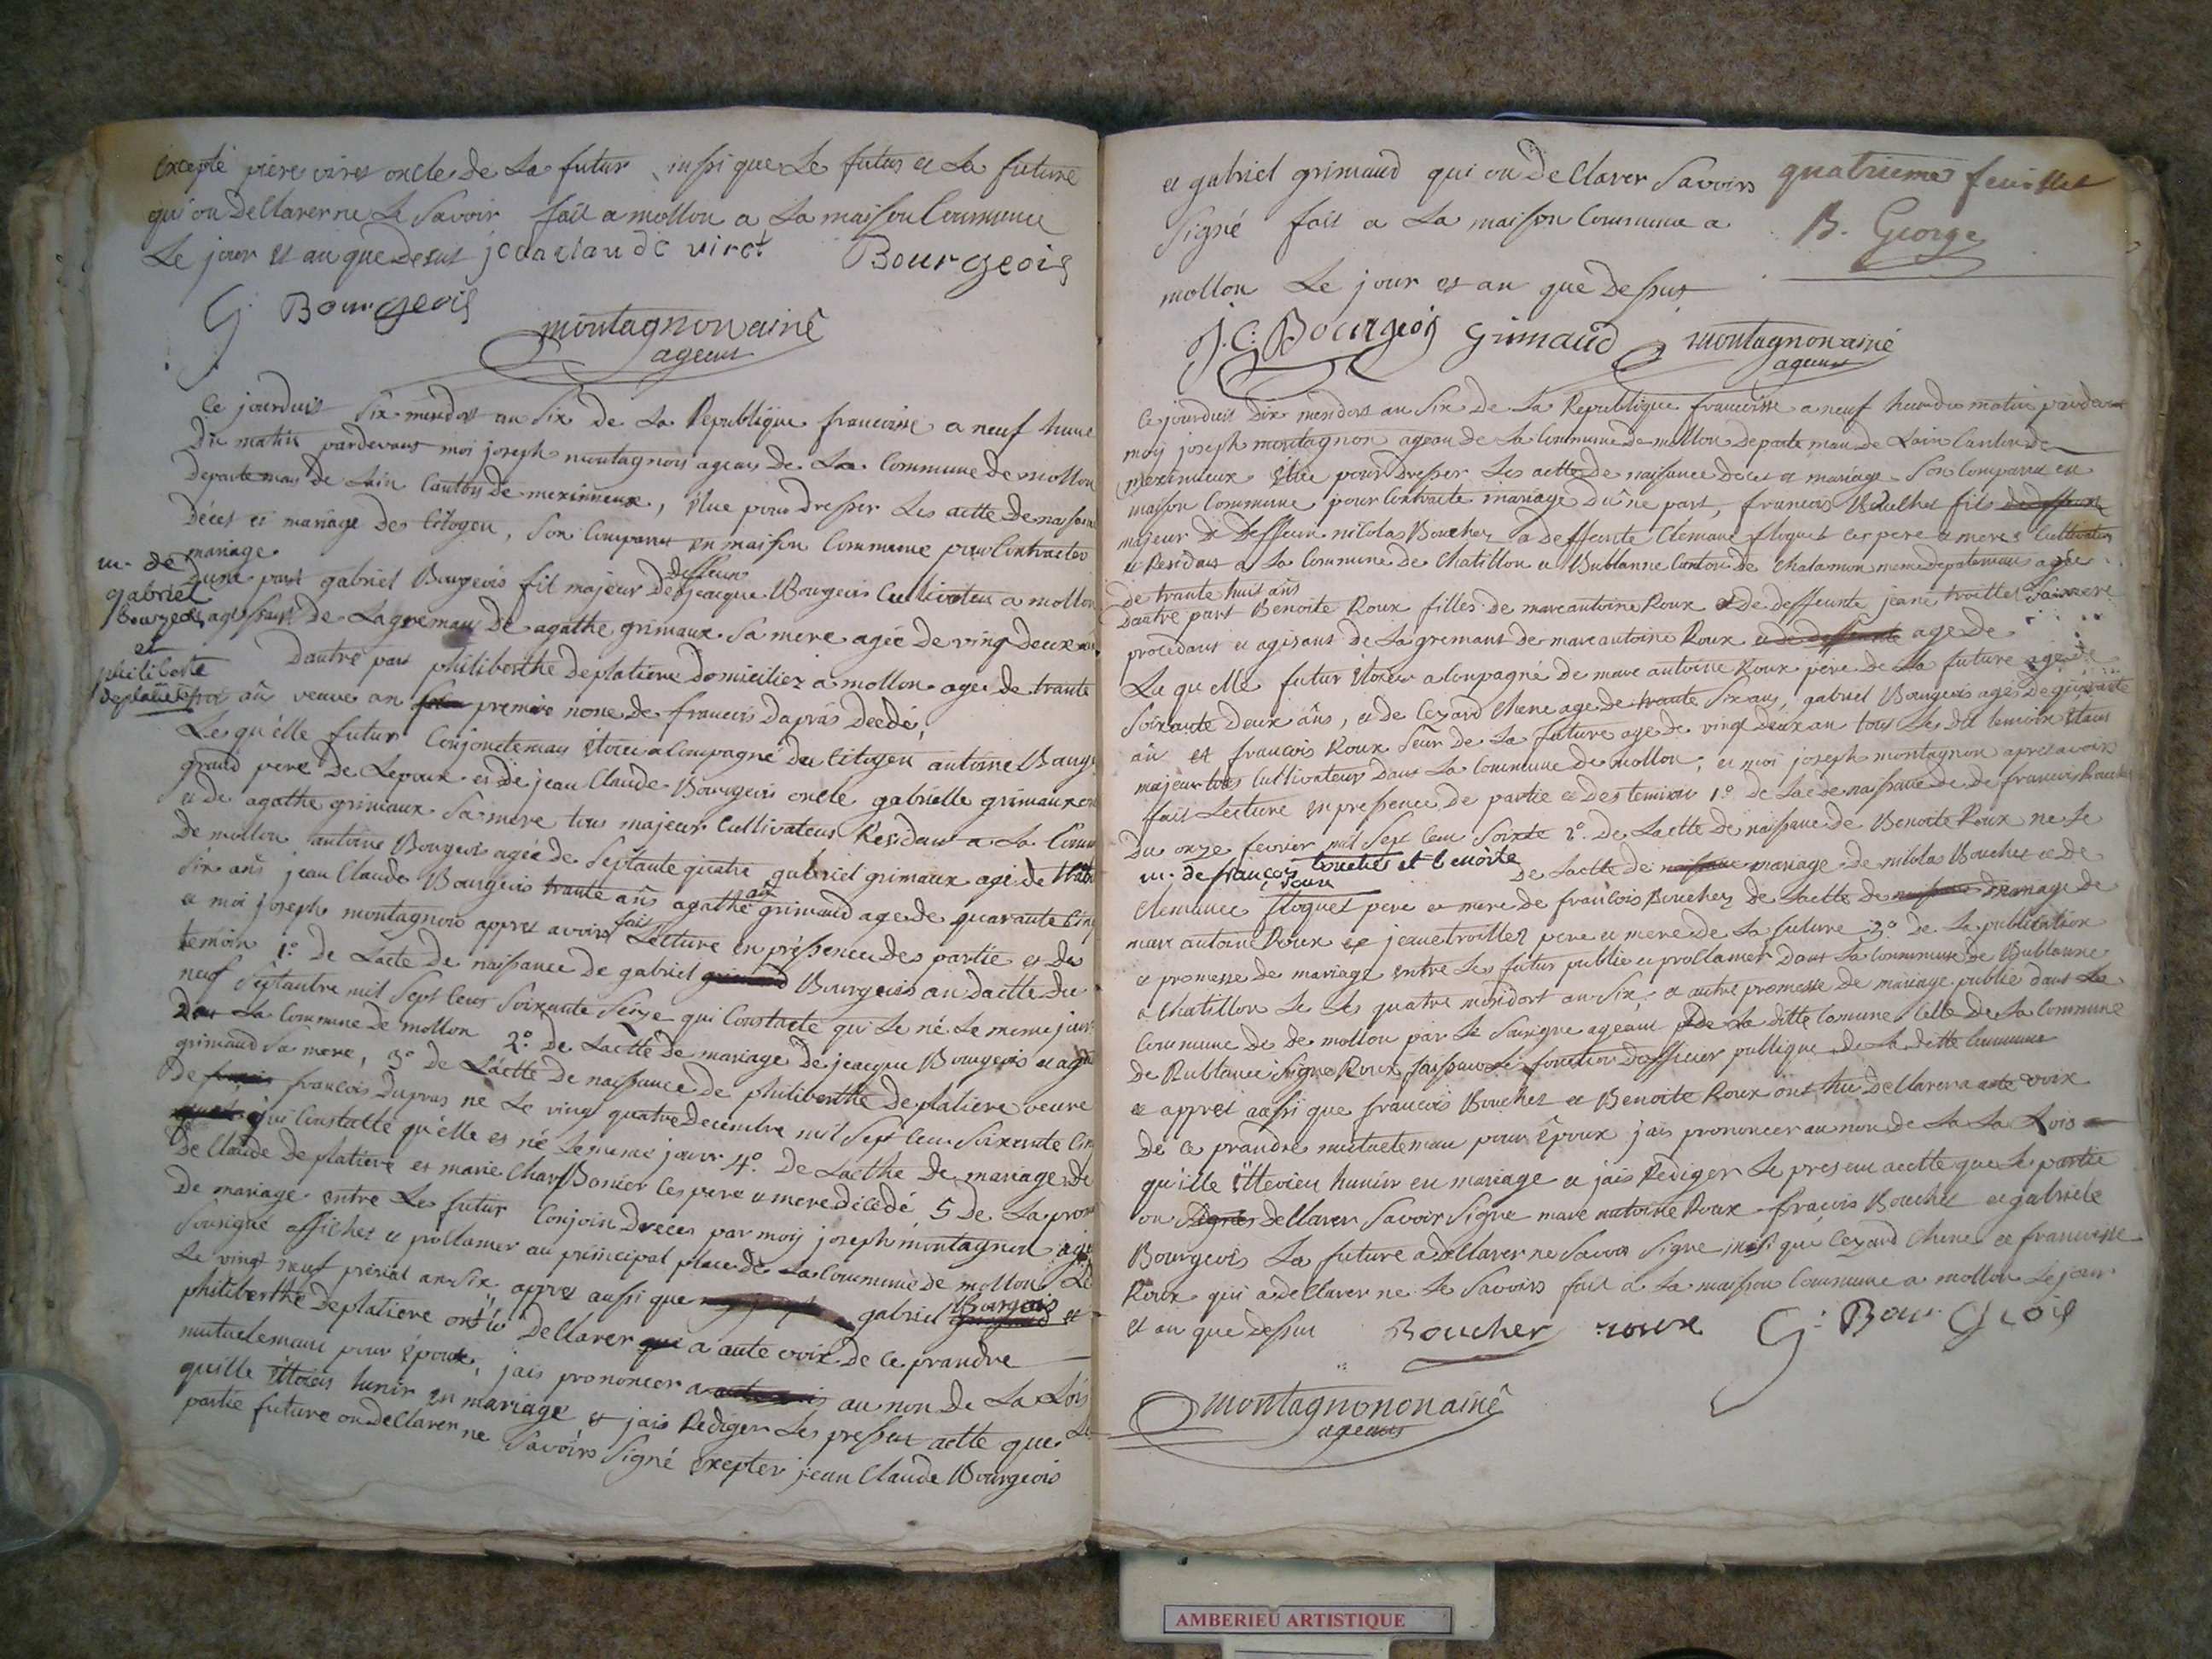 Excepté piere viret oncle de La futur insi que Le futur et La future
qui on Dellarer ne Le Savoir fait a mollon a La maison Commune
Le jour et an que Desus jean claude viret Bourgeois
G. Bourgeois
montagnon ainé
agean
Ce jourduit Six mesidort an Six de La Republique francoise a neuf heure
Du matin pardevant moi joseph montagnon agean de La Commune de mollon
departeman de Lain Canton de meximieux, Elue pour Dresser Les actte De naissance
Décet et mariage des Citoyen, Son Comparut en maison Commune pour Contracter
mariage
m. de
gabriel
bourgeois
et
philiberte
deplatiere
D'une part gabriel Bourgeois fil majeur De deffeun jeacque Bourgeois Cultivateur a mollon
agissant de Lagreman De agathe grimaux Sa mere agée de ving deux ans
Dautre part philiberthe deplatiere domiciliez a mollon agee de trante
troi an veuve an premire none de francois Dapras Decedé,
Le qu'elle futur Conjoncteman Etoiei a Compagné du Citoyen antoine Bourgeois
grand pere de Lepoux et de jean Claude Bourgeois oncle gabrielle grimaux
et de agathe grimaux Sa mere tous majeur Cultivateur Residant a La Commune
De mollon antoine Bourgeois agée de Septante quatre gabriel grimaux agé de trante
Six ans jean Claude Bourgeois trante ans agathe grimaud age de quarante Cinq ans
et moi joseph montagnon appret avoirs fait Lecture en préssence des partie et des
temoin 1º. de Lacte de naissance de gabriel grimaud Bourgeois an dactte du
neuf Séptanbre mil Sept Cens Soixante Seize qui Constacte qui Le né Le meme jour
Dans La Commune de mollon 2º. de Lactte de mariage de jeacque Bourgeois et agathe
grimaud Sa mere, 3º de Lactte de naissance de philiberthe deplatiere veuve
De francois Dupras né Le ving quatre Decembre mil Sept Cens Soixante Cinq
qui Constatte qu'elle es né Le meme jour 4º. De Lacthe de mariage de
De Claude Deplatiere et marie Char Bonier Ces pere et mere décedé 5 De La promesse
De mariage entre Le futur Conjoin Dréces par moy joseph montagnon agean
Sousigné affichet et prollamer au principal place de La Commune de mollon Le
Le vingt neuf prérial an Six appret aussi que gabriel Bourgeois et
philiberthe Deplatiere ont u Dellarer qui a aute voix de Ce prandre
mutuelemant pour Epoux, jais prononcer au non De La Lois
quille Ettoiens hunir en mariage et jais Rediger Les pressen actte que Le
partie future on dellarer ne Savoirs Signé Excepter jean Claude Bourgeois
et gabriel grimaud qui on Dellarer Savoirs
Signé fait a La maison Commune a
mollon Le jour et an que Dessus
quatrieme feuillet
B. George
J. C. Bourgeois Grimaud montagnon ainé
agean
Ce jourduit Dix mesidort an Six de La Republique francoisse a neuf heure du matin pardevan
moy joseph montagnon agean de La Commune de mollon Departeman de Lain Canton de
meximieux Elue pour Dresser Les actte de naissance Décet et mariage Son Comparut en
maison Commune pour Contracte mariage D'une part, francois Bouchet fils de deffeun
majeur De Deffeun nicolas Bouchez a deffunte Clemance floquet Ces pere et mere Cultivateur
et Residant a La Commune de Chatillon et Bublanne Canton de Chalamon meme departeman agée
de trante huit ans
Dautre part Benoite Roux filles de marc antoine Roux et De deffeunte jeane troillet Sa mere
procedant et agisant de Lagremant de marc antoine Roux et de deffunte age de
La qu'elle futur Etoiei a Conpagné de marc antoine Roux pere de La future age de
Soixante Deux ans, et de Cezard Chene age de trante Six ans, gabriel Bourgeois agés de
an et francois Roux Seur de La future age de vingt Deux an tous Le dit temoin Etans
majeur tous Cultivateur Dans La Commune de mollon, et moi joseph montagnon apres avoir
fait Lecture en pressence de partie et des temoin 1º. de Lacte de naissance de de francois Bouchet
Du onze fevrier mil Sept Cens Soixte 2º. de Lactte de naissance de Benoite Roux ne Le
m. de françois bouchet et benoite
roux
De Lactte de naissance mariage de nicolas Bouchez et de
Clemance floquet pere et mere de francois Bouchez de Lactte de naissance mariage de
marc antoine Roux et jeane troillet pere et mere de La future 3º. de La publication
et promesse de mariage entre Les futur publié et prollamer Dans La Commune de Bublanne
et Chatillon Le Les quatre mesidort an Six, et autre promesse de mariage publié dans La
Commune de de mollon par Le Sousigne agean De La ditte Comune Celle de La Commune
De Bublanne Signé Roux faissant Le fonction Dofficier publique De La ditte Commune
et appret aussi que francois Bouchet et Benoite Roux ont hu Dellarer a aute voix
De Ce prandre mutuelemen pour Epoux jais prononcer au non de La La Lois
qu'ille Ettevien hunir en mariage et jais Rediger Le present actte que Le partie
on Signés Dellarer Savoir Signe marc antoine Roux fraçois Bouchet et gabriele
Bourgeois La future a dellarer ne Savoir Signe insi que Cezard Chene et francoisse
Roux qui a dellarer ne Le Savoirs fait a La maison Commune a mollon Le jour
et an que dessus Boucher roux G. Bourgeois
montagnon ainé
agean
AMBERIEU ARTISTIQUE